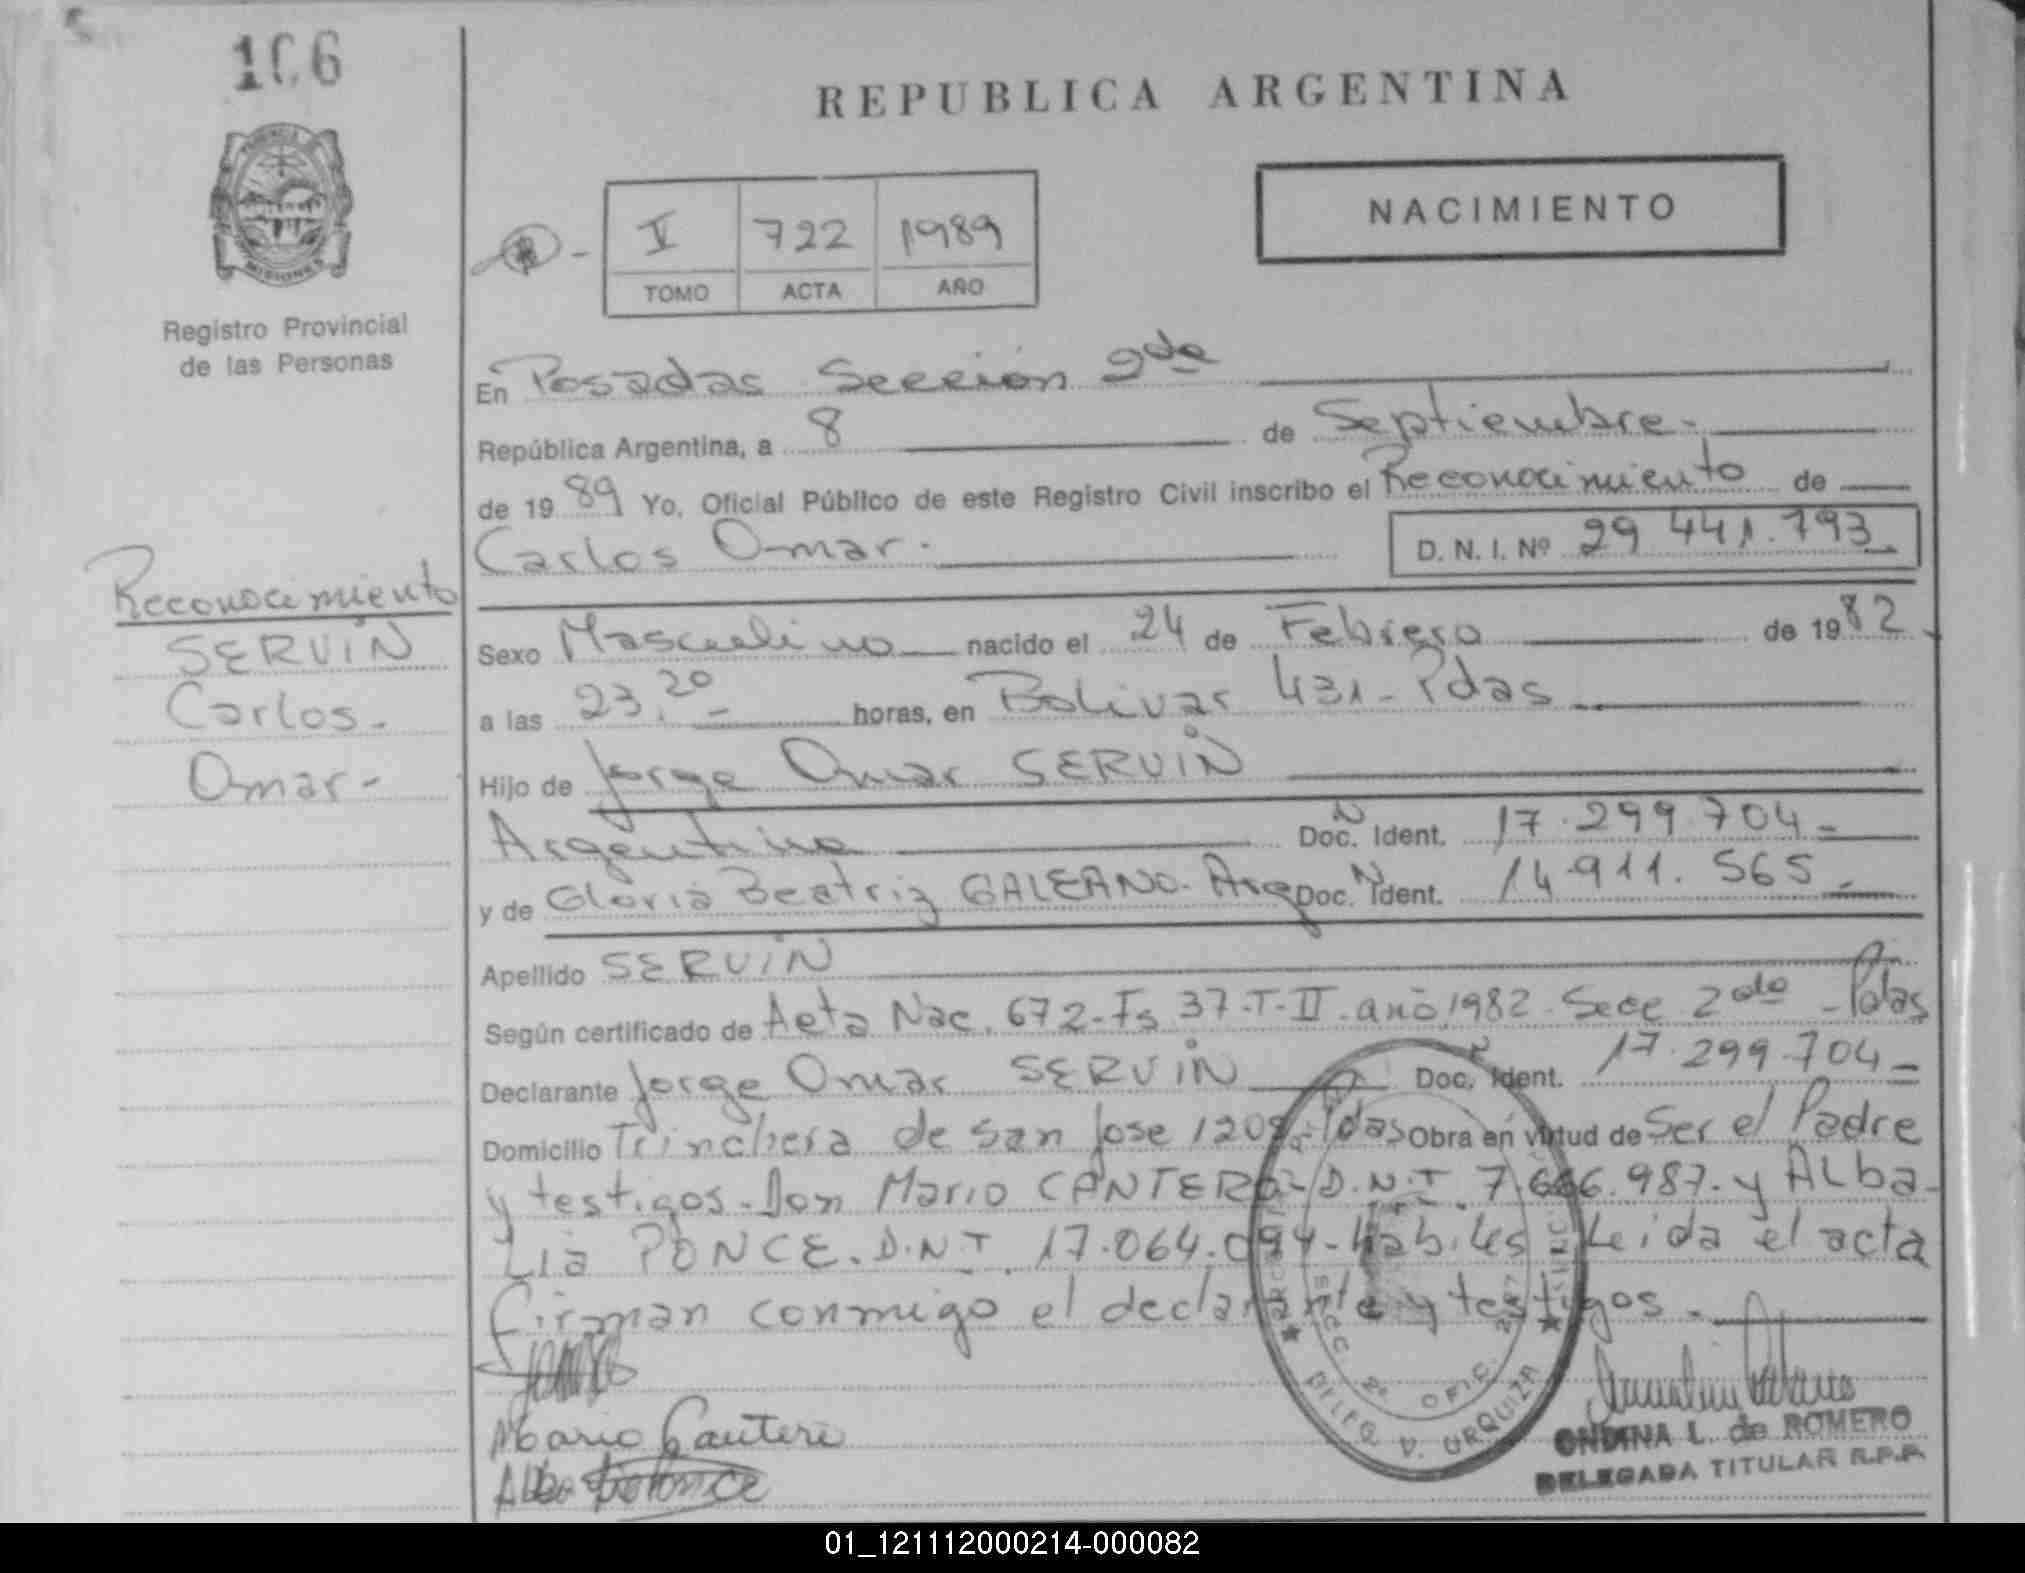 106
REPUBLICA ARGENTINA
PROVINCIA
MISIONES
Registro Provincial
de las Personas
NACIMIENTO
I 722 1989
TOMO ACTA AÑO
En Posadas Sección 2da
República Argentina, a 8 de Septiembre.
de 1989 Yo, Oficial Público de este Registro Civil inscribo el Reconocimiento de
Carlos Omar. D. N. I. Nº 29.441.793
Reconocimiento
SERVIN
Carlos
Omar
Sexo Masculino nacido el 24 de Febrero de 1982
a las 23,20 horas, en Bolivar 431 - Pdas
Hijo de Jorge Omar SERVIN
Argentino Doc. N Ident. 17.299.704
y de Gloria Beatriz GALEANO. Arg Doc. N Ident. 14.911.565
Apellido SERVIN
Según certificado de Acta Nac. 672-Fs 37-T-II-año 1982-Secc 2da - Pdas
Declarante Jorge Omar SERVIN Doc. Ident. 17.299.704
Domicilio Trinchera de San Jose 1208 Pdas Obra en virtud de Ser el Padre
y testigos. Don Mario CANTERO - D.N.I. 7.666.987. y ALba
Lia PONCE. D.N.I. 17.064.094 - Habiles Leida el acta
firman conmigo el declarante y testigos.
SECC. 2ª OFIC.
V. URQUIZA
Mario Cantero
Alba Ponce
ONDINA L. de ROMERO
DELEGADA TITULAR R.P.P.
01_121112000214-000082